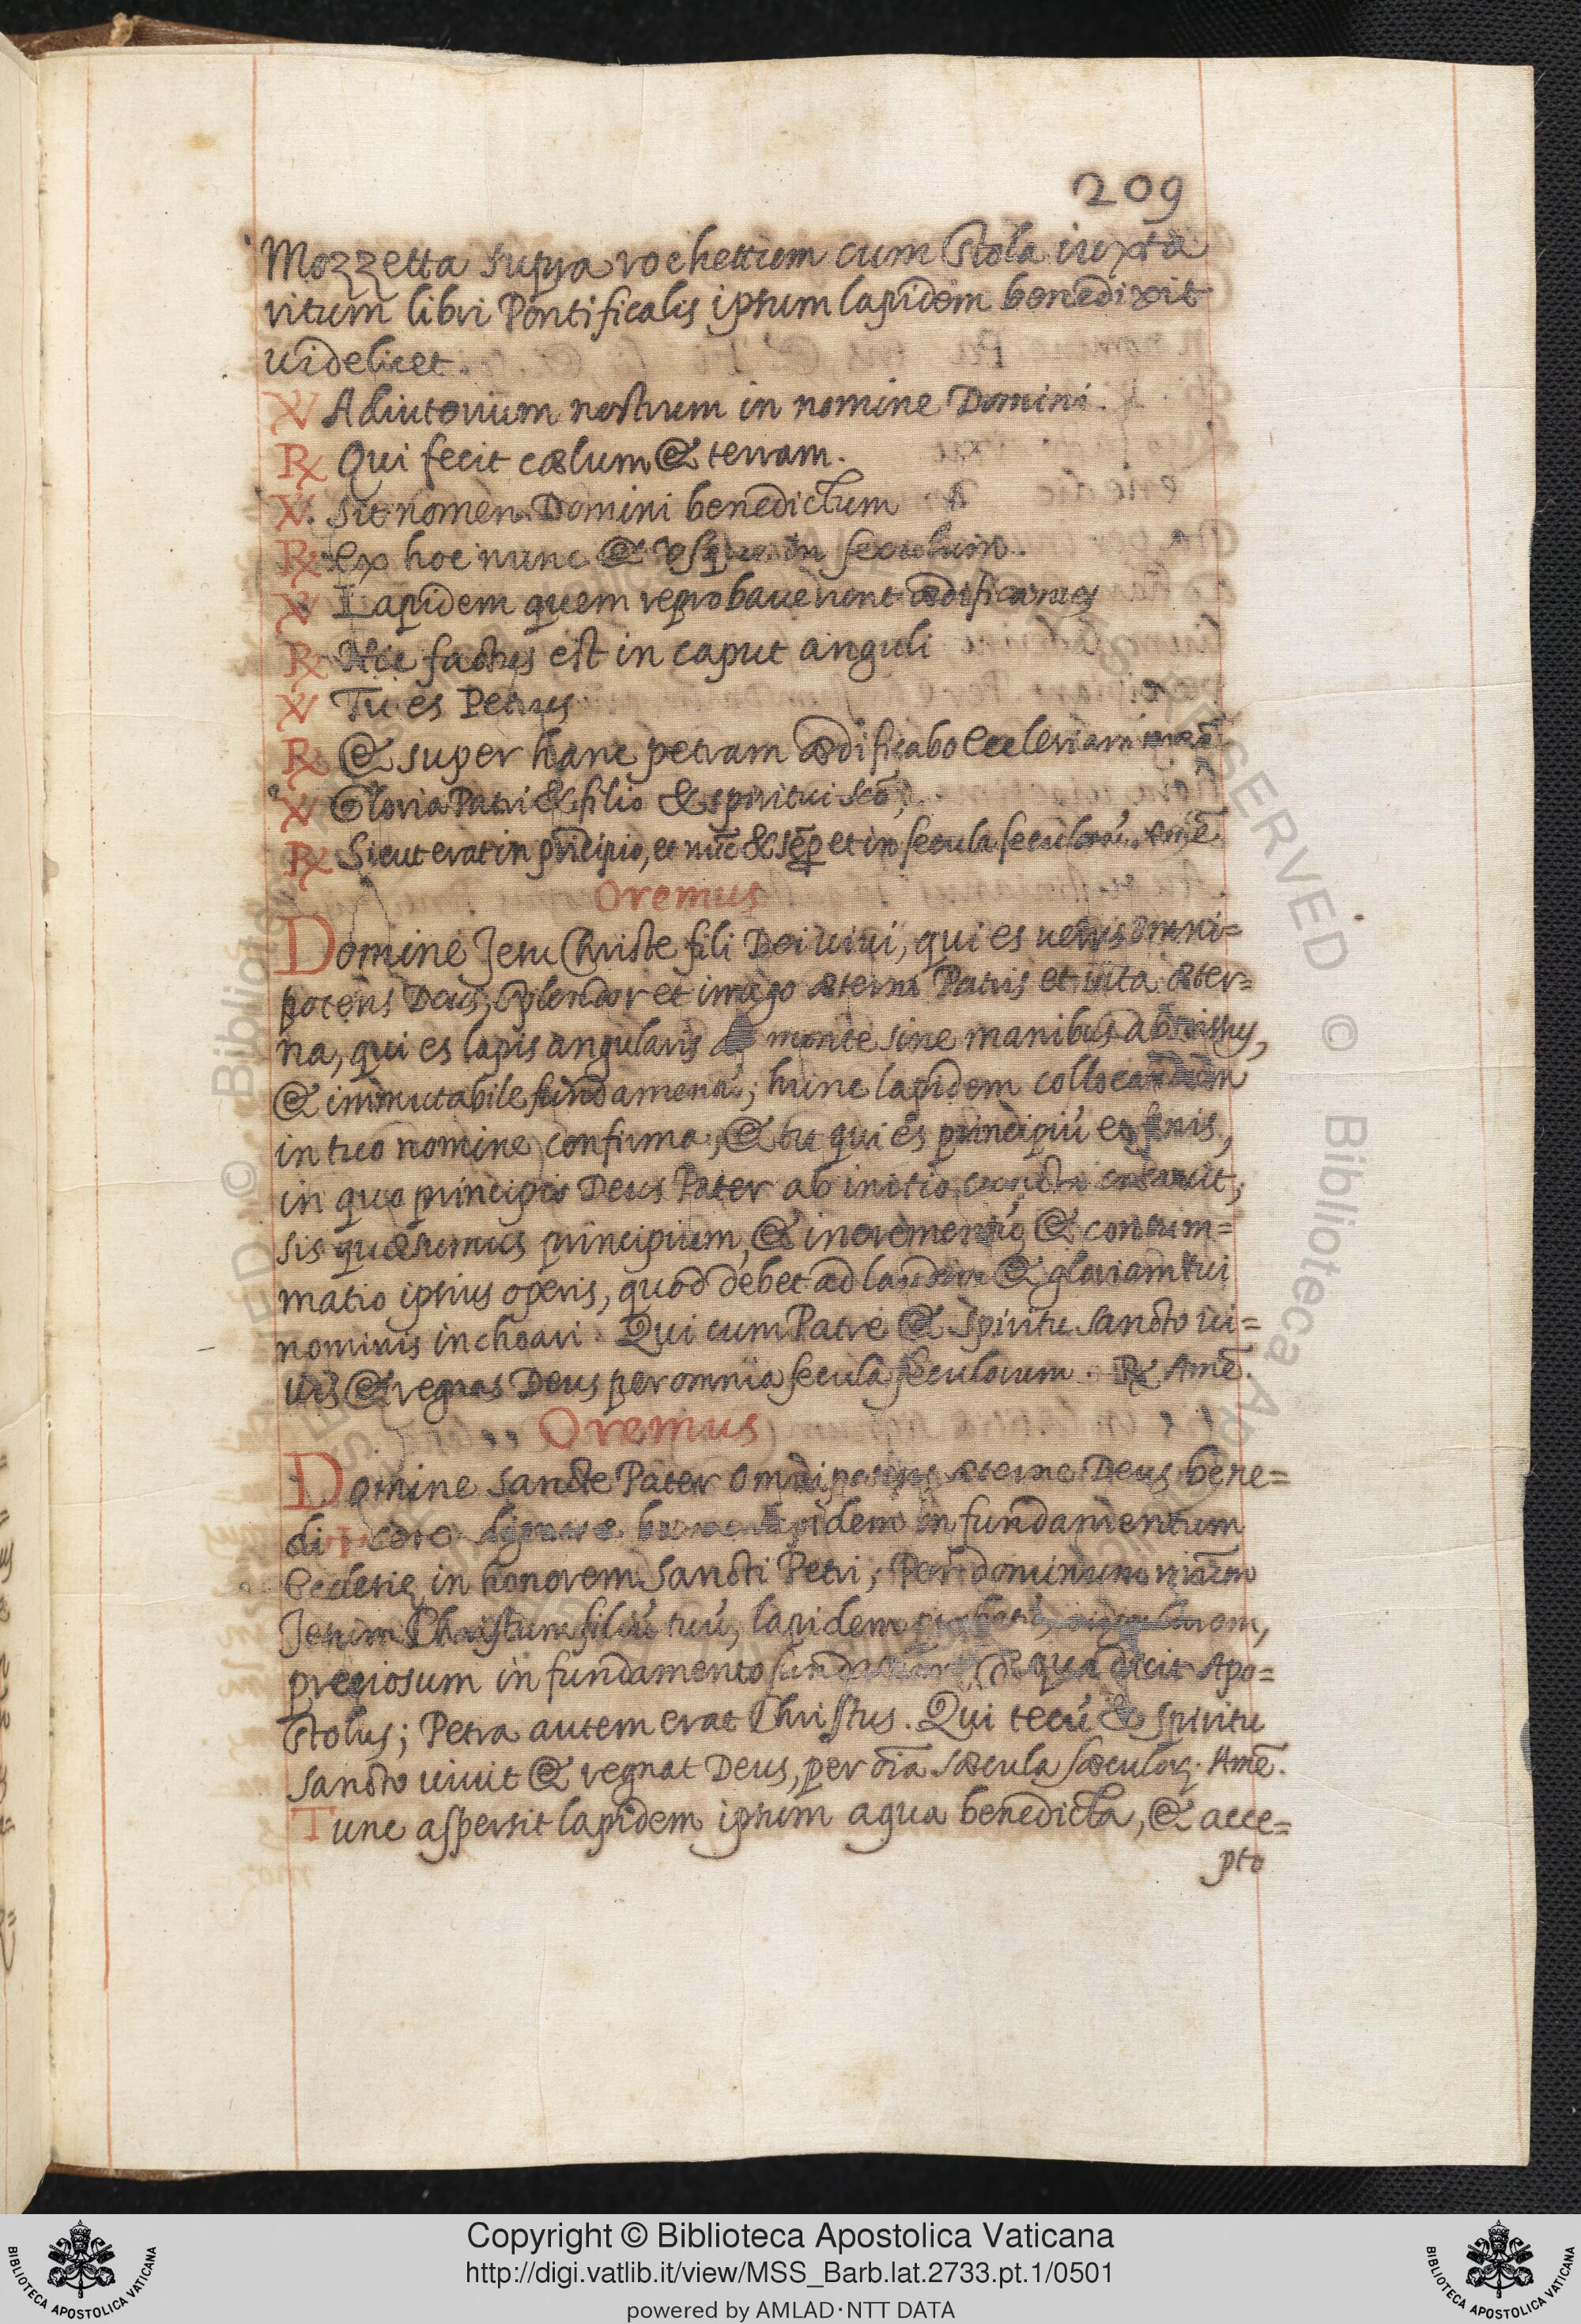 209
Mozzetta supra rochettum cum stola iuxta
ritum libri Pontificalis ipsum lapidem benedixit
uidelicet.
℣ Adiutorium nostrum in nomine Domini.
℟ Qui fecit cælum & terram.
℣. Sit nomen Domini benedictum
℟ ex hoc nunc & usque in seculum.
℣ Lapidem quem reprobauerunt ædificantes
℟ Hic factus est in caput anguli
℣ Tu es Petrus
℟ & super hanc petram ædificabo Ecclesiam meã
℣ Gloria Patri & filio & spiritui scõ,
℟ Sicut erat in prĩcipio, et nũc & sẽp et in secula seculorũ. Amẽ.
Oremus
Domine Jesu Christe fili Dei uiui, qui es uerus omni=
potens Deus, splendor et imago æterni Patris et uita æter=
na, qui es lapis angularis de monte sine manibus abscissus,
& immutabile fundamentũ; hunc lapidem collocandum
in tuo nomine confirma, & tu qui es principiũ et finis,
in quo principio Deus Pater ab initio cuncta creauit,
sis quæsumus principium, & incrementũ, & consum=
matio ipsius operis, quod debet ad laudem & gloriam tui
nominis inchoari. Qui cum Patre & Spiritu sancto ui=
uis & regnas Deus per omnia secula seculorum. ℟ Amẽ.
Oremus
Domine sancte Pater omnipotens æterne Deus bene=
di + cere dignare hunc lapidem in fundamentum
Ecclesię in honorem Sancti Petri; Per dominum nrũm
Jesum Christum filiũ tuũ, lapidem probatũ, angularem,
preciosum in fundamento fundatum, de qua dicit Apo=
stolus; Petra autem erat Christus. Qui tecũ & Spiritu
sancto uiuit & regnat Deus, per oĩa sæcula sæculorꝫ. Amẽ.
Tunc aspersit lapidem ipsum aqua benedicta, & acce=
pto
Copyright © Biblioteca Apostolica Vaticana
http://digi.vatlib.it/view/MSS_Barb.lat.2733.pt.1/0501
powered by AMLAD·NTT DATA
BIBLIOTECA APOSTOLICA VATICANA
BIBLIOTECA APOSTOLICA VATICANA